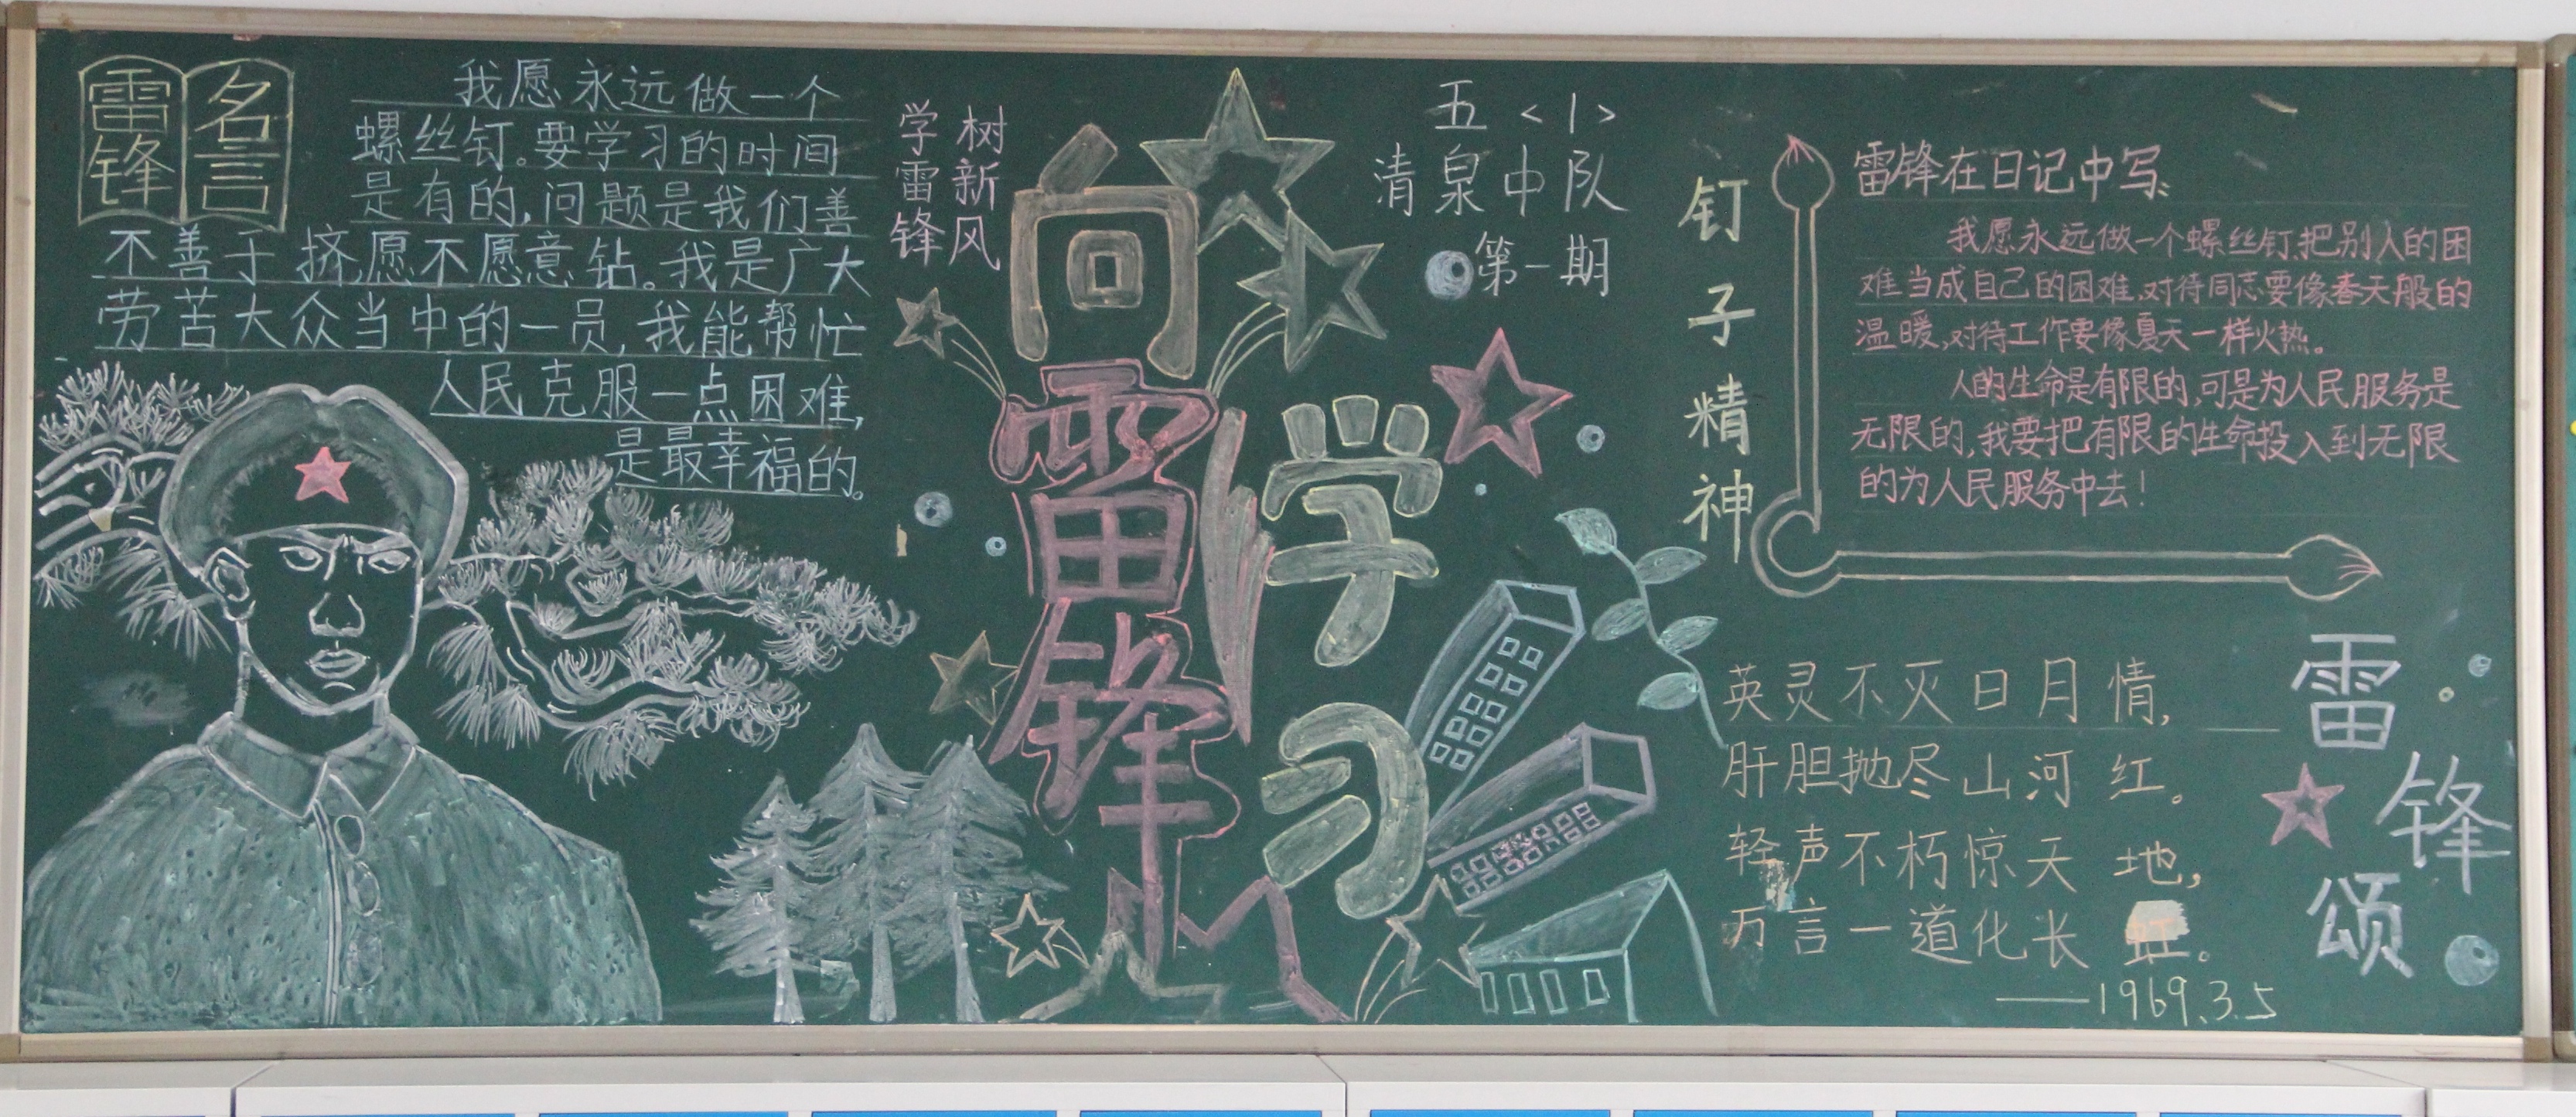 雷锋
名言
我愿永远做一个
螺丝钉。要学习的时间
是有的,问题是我们善
不善于挤,愿不愿意钻。我是广大
劳苦大众当中的一员,我能帮忙
人民克服一点困难,
是最幸福的。
学雷锋
树新风
向
雷锋
学习
五<1>
清泉中队
第一期
钉子精神
雷锋在日记中写:
我愿永远做一个螺丝钉,把别人的困
难当成自己的困难,对待同志要像春天般的
温暖,对待工作要像夏天一样火热。
人的生命是有限的,可是为人民服务是
无限的,我要把有限的生命投入到无限
的为人民服务中去!
雷锋颂
英灵不灭日月情,
肝胆抛尽山河红。
轻声不朽惊天地,
万言一道化长虹。
——1969.3.5